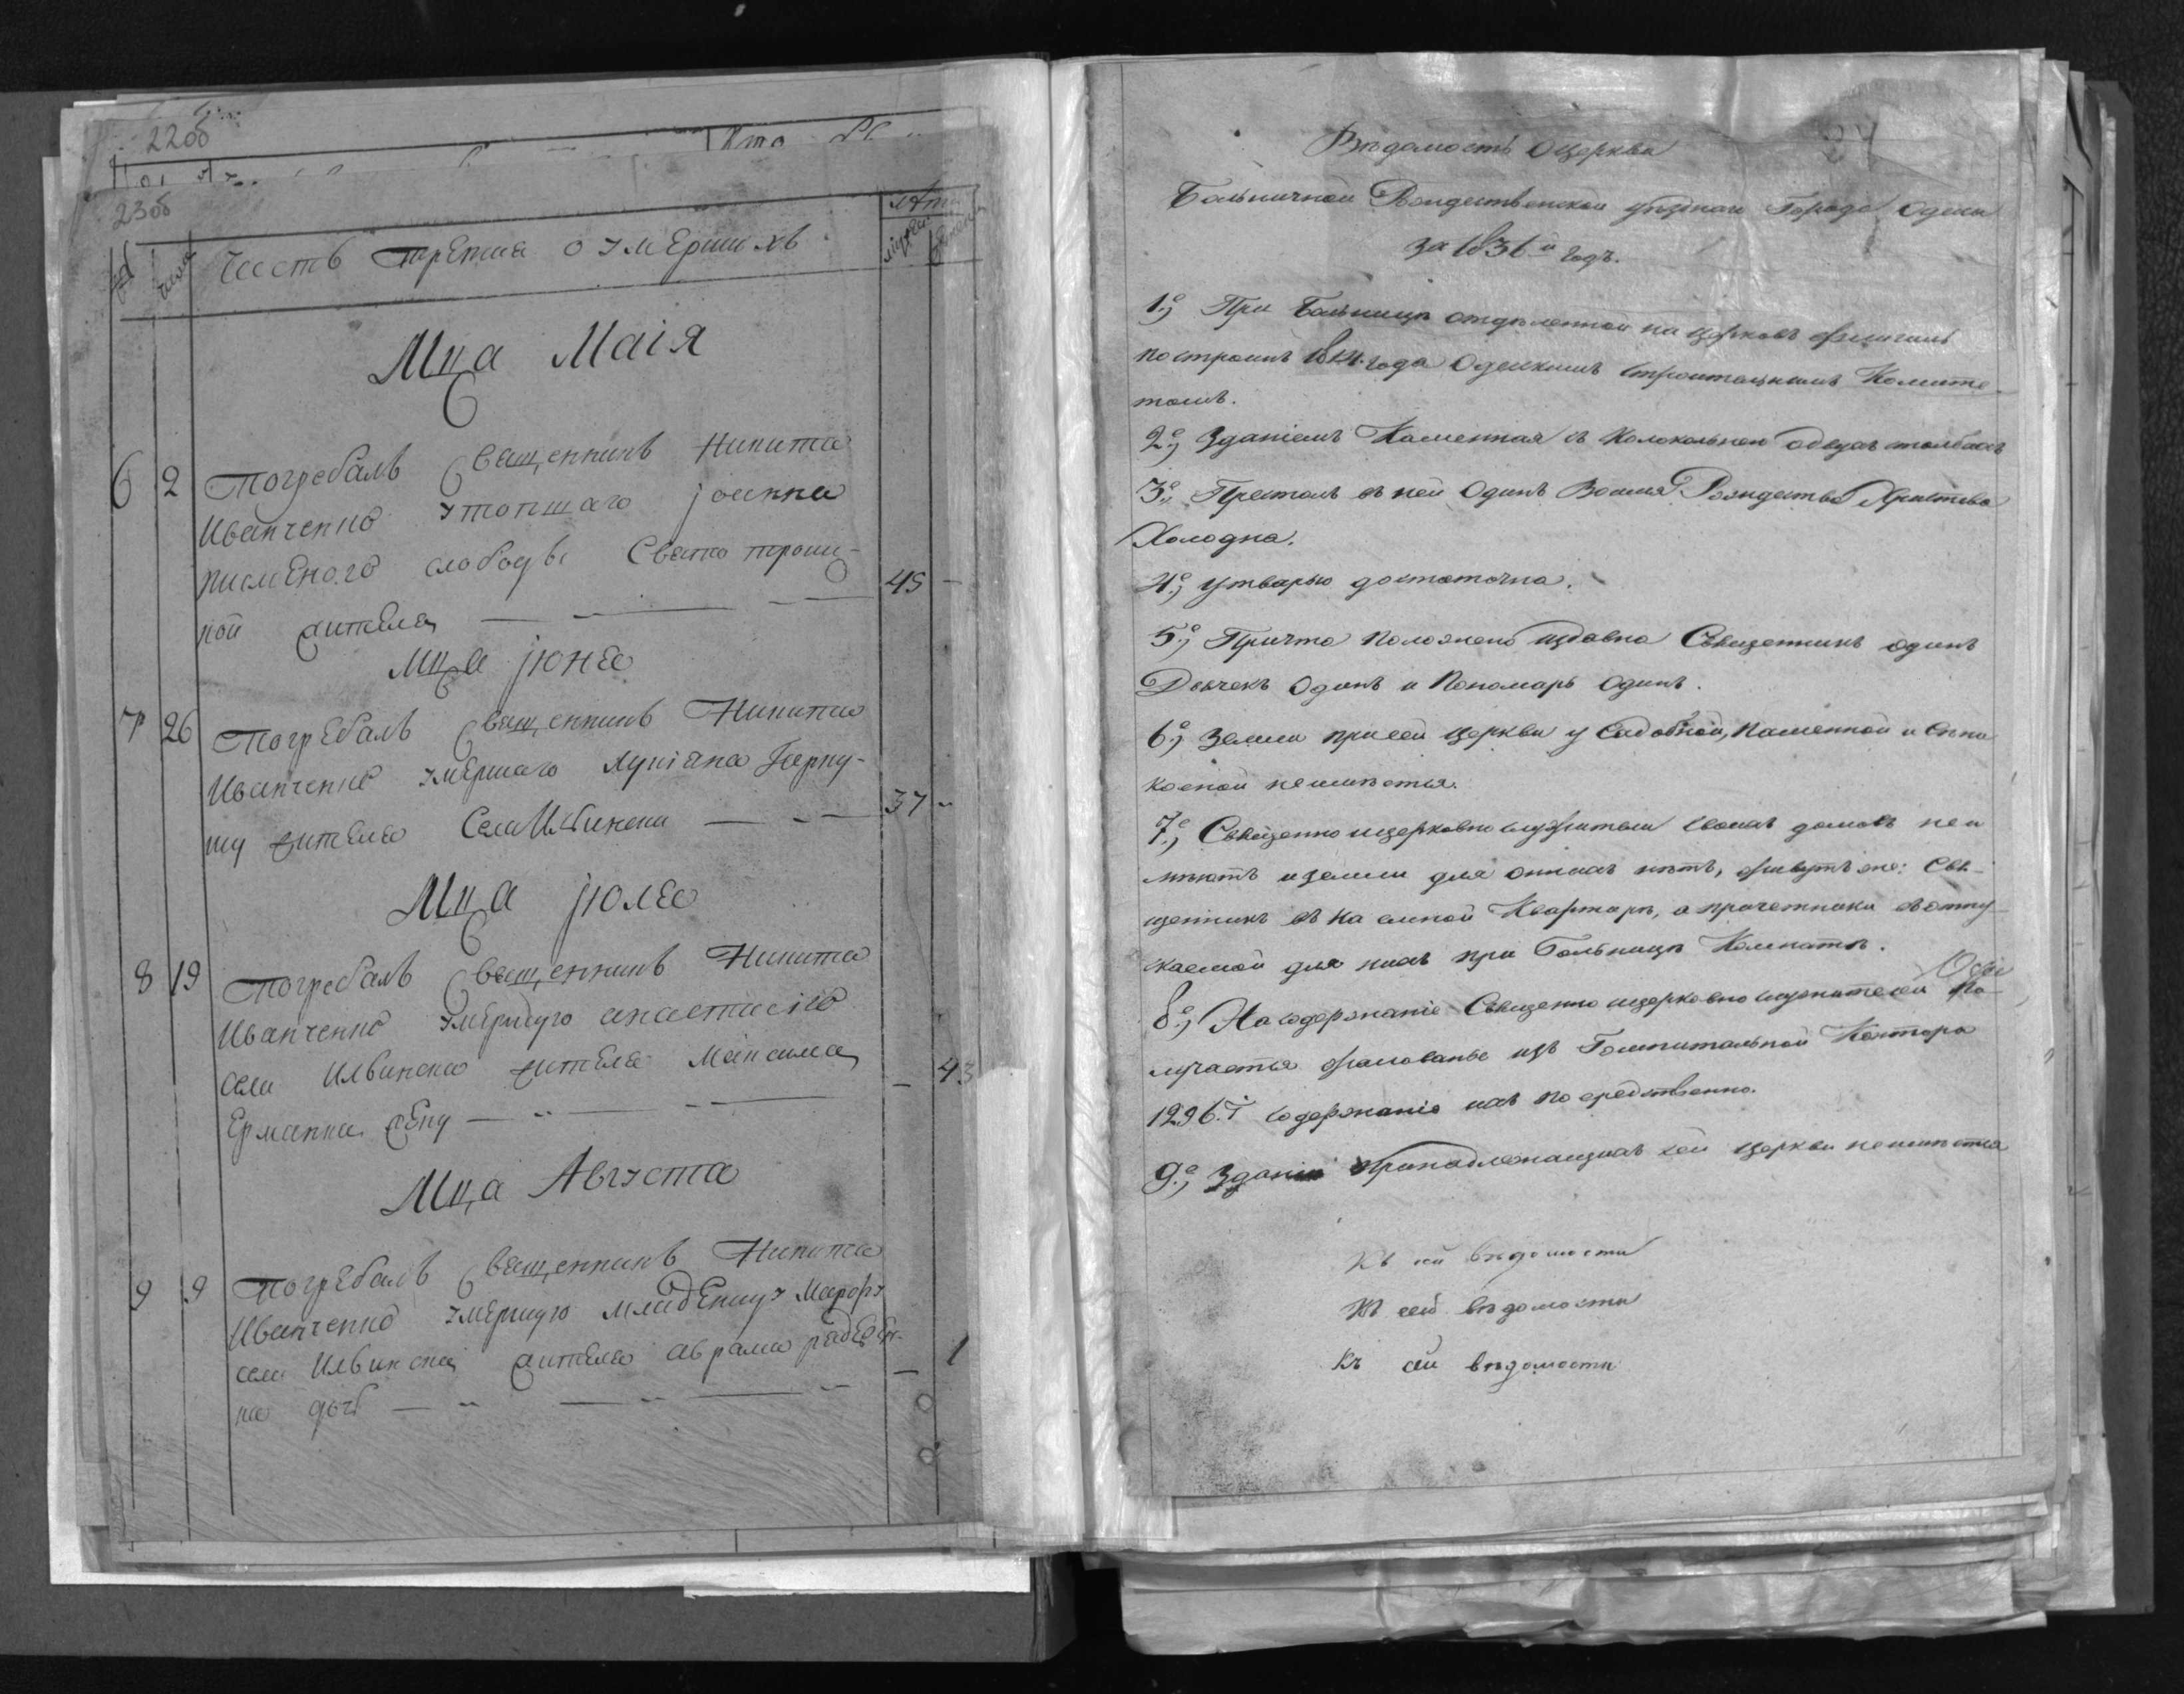 22об
23об
Часть третиа о умершихъ
Лѣта
число
Мца Маія
6 2 Погребалъ Священникъ Никита
Иванченко утопшаго Іоанна
писменого слободы Свято троиц-
кой жителя 45 —
Мца Іюня
7 26 Погребалъ Священникъ Никита
Иванченко умершаго Лукіана
жителя Села Илѣински 37
Мца Іюля
8 19 Погребалъ Священникъ Никита
Иванченко умершую анастасію
села Илъинска жителя Максима
Ермакка жену — 43
Мца Августа
9 9 Погребалъ Священникъ Никита
Иванченко умершую младеницу Марфу
села Илъинска жителя аврама
на дочь — 1
Вѣдомость о церкви
Больничной Рождественской уѣзднаго Города Одессы
за 1831й годъ.
1е, При Больницѣ отдѣленной на церковь флигель
построенъ 1814 года Одескимъ Строительнымъ Комите-
томъ.
2е, Зданіемъ Каменная съ Колокольнею
3е, Престолъ въ ней Одинъ Во имя Рождества Христова
Холодна.
4е, Утварью достаточна.
5е, Причта положено издавна Священникъ одинъ
Дьячекъ Одинъ и Пономарь Одинъ.
6е, Земли при сей церкви усадобной, пашенной и сѣно
косной неимѣется.
7е, Священно ицерковно служители своихъ домовъ неи
мѣютъ и земли для оныхъ нѣтъ, живутъ же: Свя-
щенникъ въ на емной Квартирѣ, а причетники въ отпу-
скаемой для нихъ при Больницѣ Комнатѣ.
8е, На содержаніе Священно ицерковно служителей по-
лучается жалованье изъ Гошпитальной Конторы
1296. содержаніе ихъ посредственно.
9е, Зданій Принадлежащихъ сей церкви неимѣется
Къ сей вѣдомости
Къ сей вѣдомости
Къ сей вѣдомости